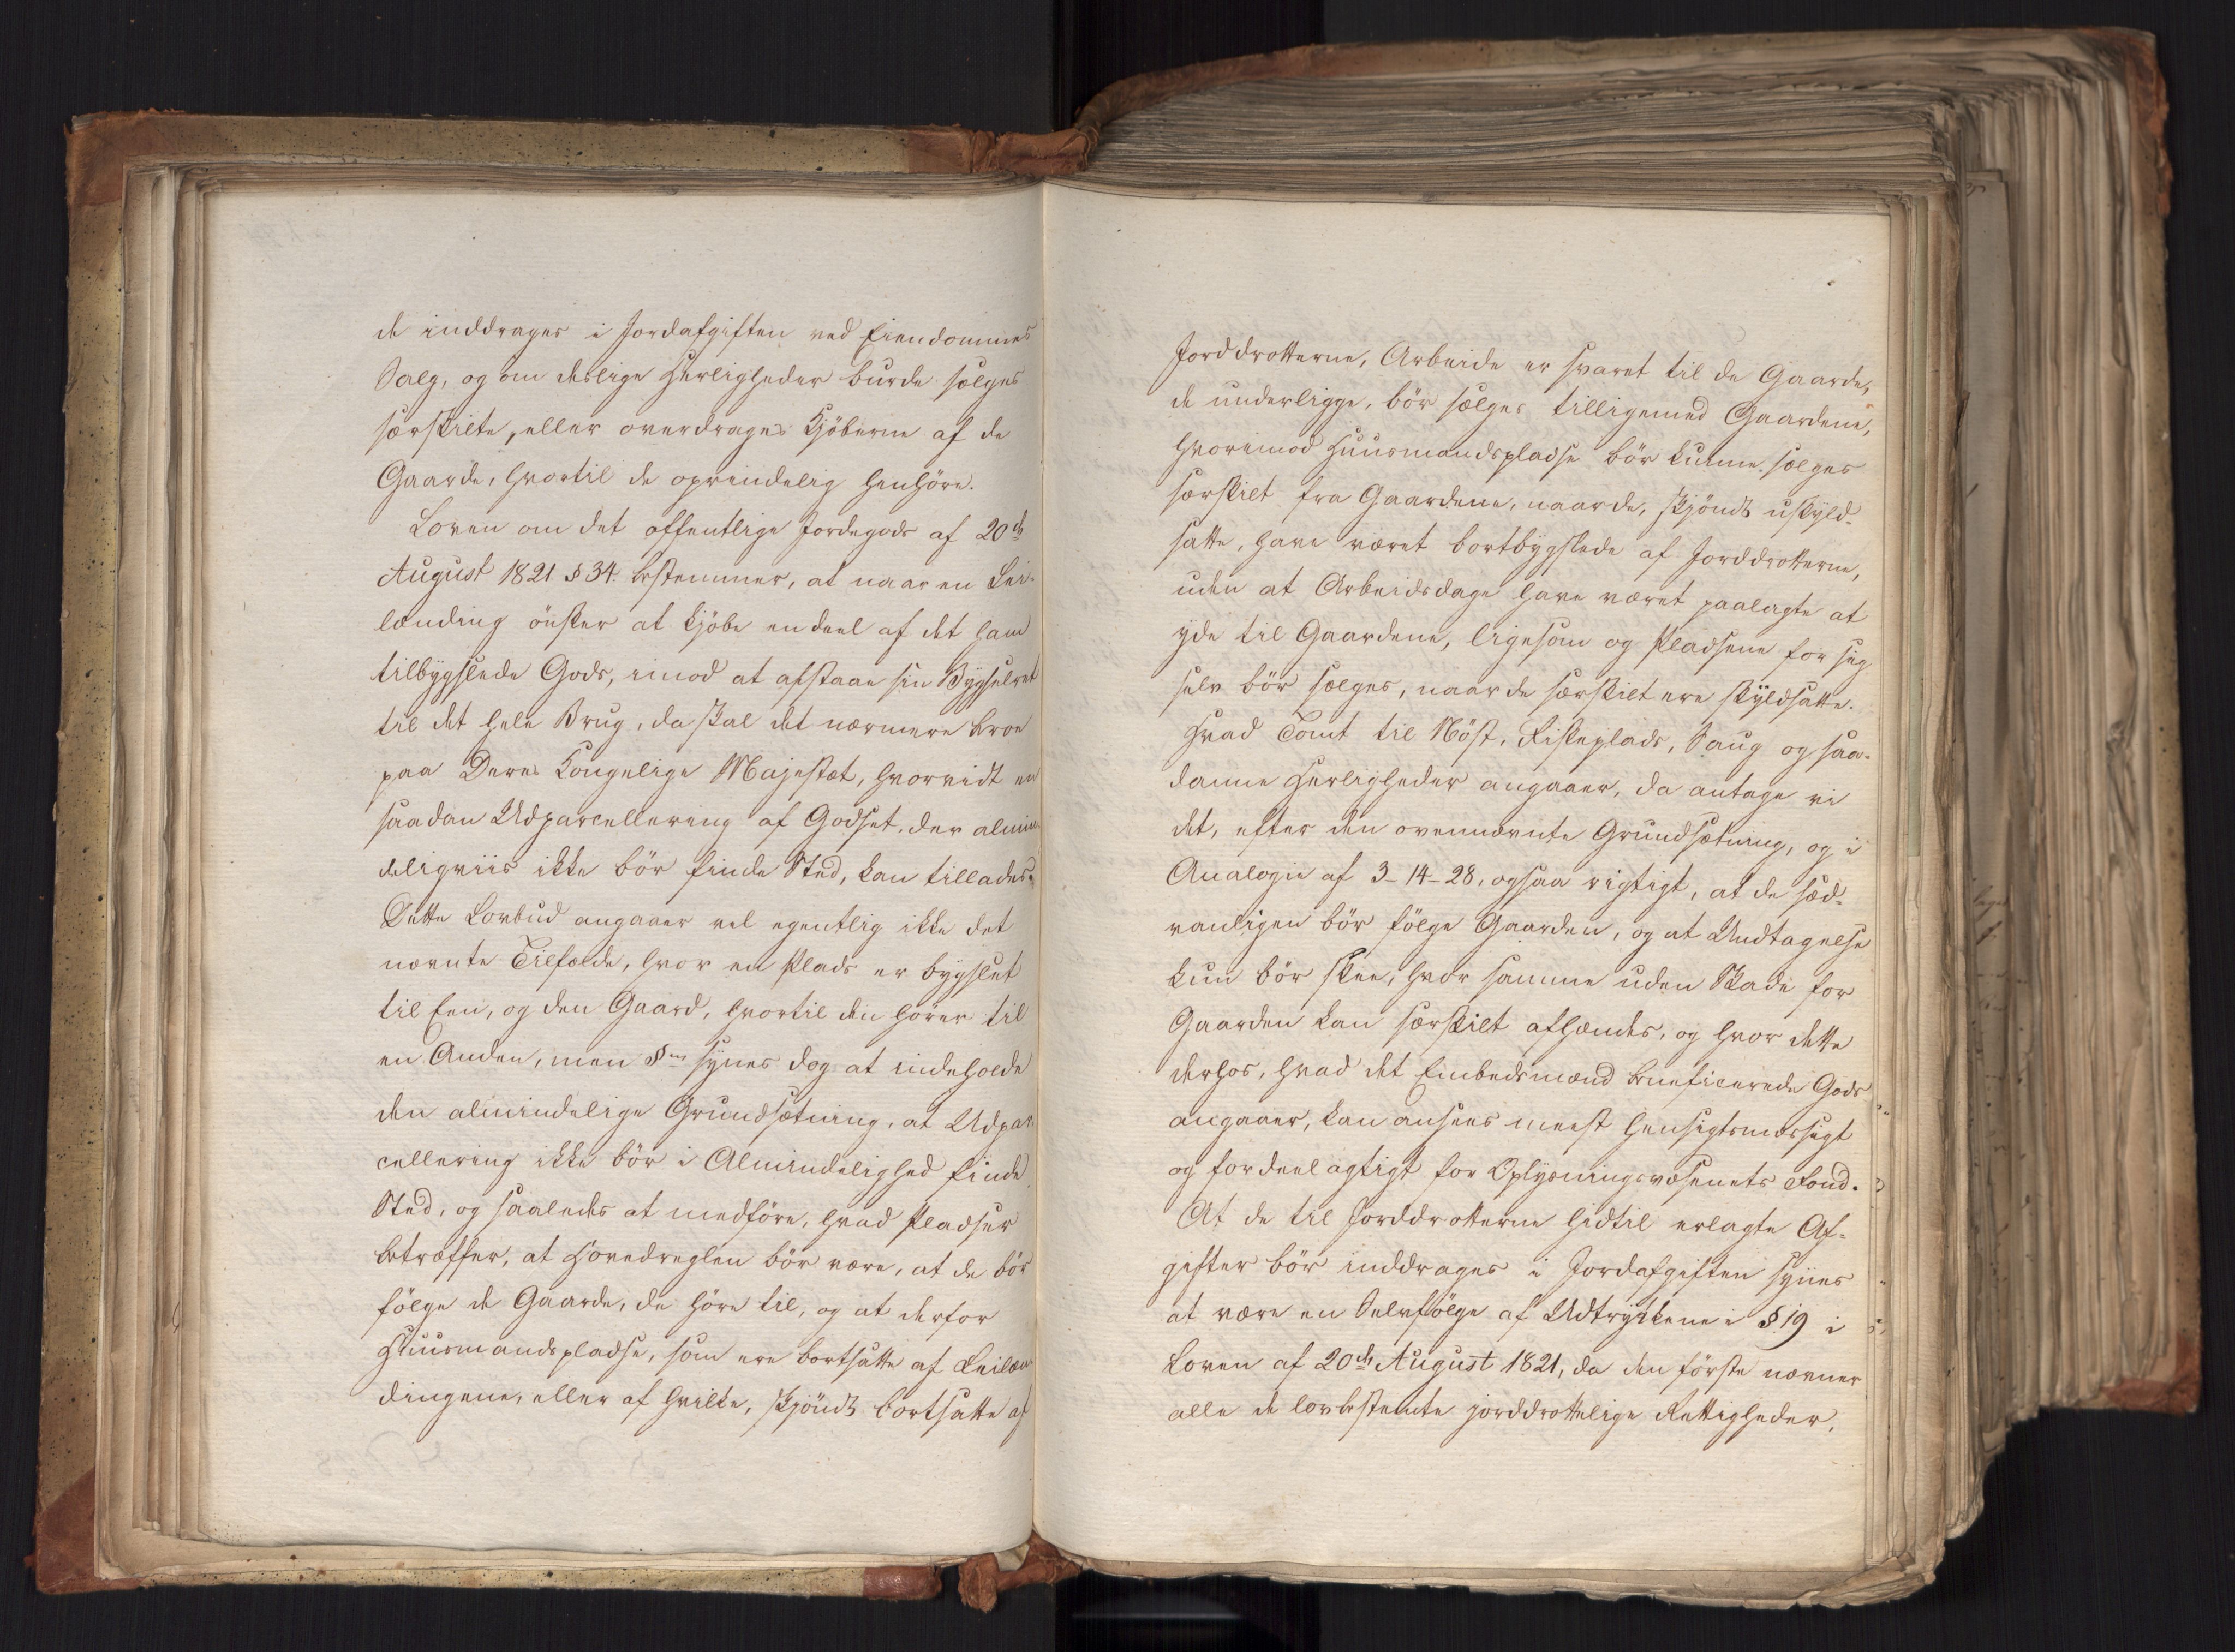 de inddrages i Jordafgiften ved Eiendommes
Salg, og om deslige Herligheder burde sælges
særskilte, eller overdrages Kjöberne af de
Gaarde, hvortil de oprindelig henhöre.
Loven om det offentlige Jordegods af 20de
August 1821 § 34 bestemmer, at naar en Lei-
lænding önsker at kjöbe en deel af det ham
tilbygslede Gods, imod at afstaae sin Bygselret
til det hele Brug, da skal det nærmere beroe
paa Deres Kongelige Majestæt, hvorvidt en
saadan Udparcellering af Godset, der almin-
deligviis ikke bör finde Sted, kan tillades.
Dette Lovbud angaaer vel egentlig ikke det
nævnte Tilfælde, hvor en Plads er bygslet
til Een, og den Gaard, hvortil den hörer til
en Anden, men §en synes dog at indeholde
den almindelige Grundsætning, at Udpar-
cellering ikke bör i Almindelighed finde
Sted, og saaledes at medföre, hvad Pladser
betræffer, at Hovedreglen bör være, at de bör
fölge de Gaarde, de höre til, og at derfor
Huusmandspladse, som ere bortsatte af Leilæn-
dingene, eller af hvilke, skjöndt bortsatte af
Jorddrotterne, Arbeide er svaret til de Gaarde,
de underligge, bör sælges tilligemed Gaardene,
hvorimod Huusmandspladse bör kunne sælges
særskilt fra Gaardene, naar de, skjöndt uskyld-
satte, have været bortbygslede af Jorddrotterne,
uden at Arbeidsdage have været paalagte at
yde til Gaardene, ligesom og Pladsene for sig
selv bör sælges, naar de særskilt ere skyldsatte.
Hvad Tomt til Nöst, Fiskeplads, Saug og saa-
danne Herligheder angaaer, da antage vi
det, efter den ovennævnte Grundsætning, og i
Analogie af 3-14-28, ogsaa rigtigt, at de sæd-
vanligen bör fölge Gaarden, og at Undtagelse
kun bör skee, hvor samme uden Skade for
Gaarden kan særskilt afhændes, og hvor dette
derhos, hvad det Embedsmænd beneficerede Gods
angaaer, kan ansees meest hensigtsmæssigt
og fordeelagtigt for Oplysningsvæsenets Fond.
At de til Jorddrotterne hidtil erlagte Af-
gifter bör inddrages i Jordafgiften synes
at være en Selvfölge af Udtrykkene i § 19 i
Loven af 20de August 1821, da den förste nævner
alle de lovbestemte jorddrottelige Rettigheder,